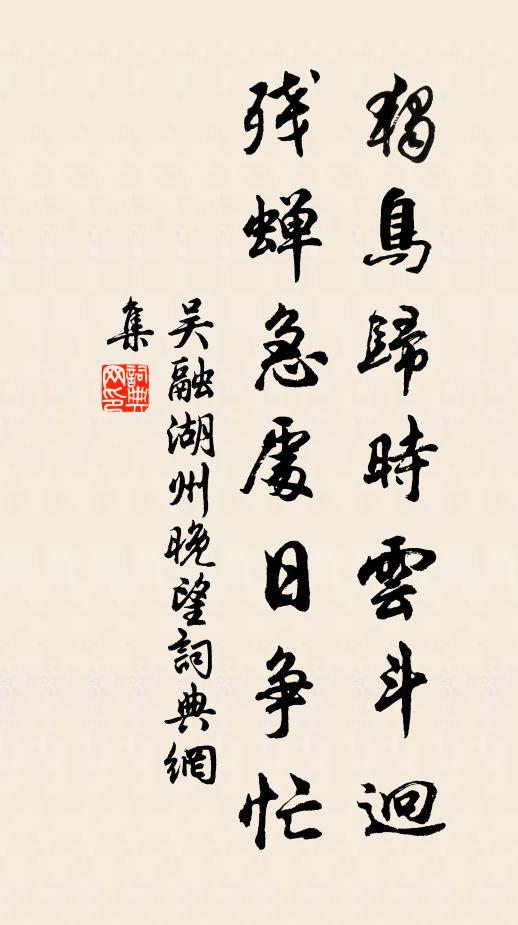 獨鳥歸時雲斗迥
残蝉急處日争忙
吴融湖州晚望詞典網
集
詞典网印